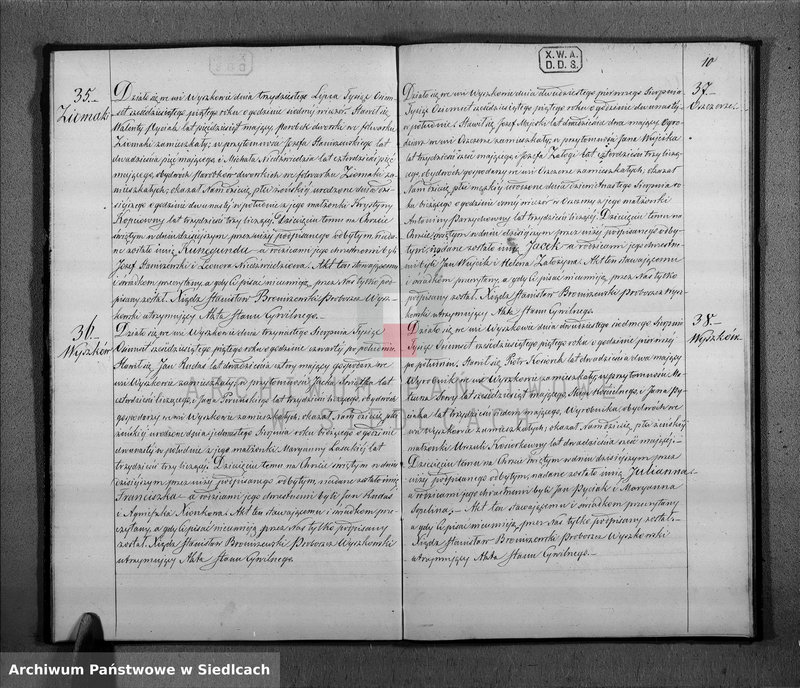 X.W.A.
D.D.S.
10
35.
Ziomaki
Działo się we wsi Wyszkowie dnia trzydziestego Lipca Tysiąc Ośm-
set sześćdziesiątego piątego roku o godzinie siódmej wieczór. Stawił się
Walenty Ryciak lat pięćdziesiąt mający parobek dworski w folwarku
Ziomaki zamieszkały, w przytomności Józefa Staniszewskiego lat
dwadzieścia pięć mającego i Michała Niedźwiedzia lat czterdzieści pięć
mającego, obydwóch Parobków dworskich na folwarku Ziomaki za-
mieszkałych; okazał Nam dziécię płci żeńskiéj urodzone dnia
dzisiejszego o godzinie dwunastéj w południe z jego małżonki Krystyny
lat trzydzieści trzy liczącéj. Dziecięciu temu na Chrzcie
świętym w dniu dzisiejszym przez niżej podpisanego odbytym, nada-
ne zostało imię Kunegunda a rodzicami jego chrzestnemi byli
Józef Staniszewski i Leonora Niedźwiedziowa. Akt ten stawającemu
i świadkom przeczytany, a gdy Ci pisać nieumieją, przez Nas tylko pod-
pisany został. Xiądz Stanisław Broniszewski Proboszcz Wysz-
kowski utrzymujący Akta Stanu Cywilnego.
36.
Wyszków
Działo się we wsi Wyszkowie dnia trzynastego Sierpnia Tysiąc
Ośmset sześćdziesiątego piątego roku o godzinie czwartéj po południu.
Stawił się Jan Kudas lat dwadzieścia cztery mający gospodarz we
wsi Wyszkowie zamieszkały, w przytomności Jacka lat
czterdzieści liczącego, i Jana lat trzydzieści liczącego, obydwóch
gospodarzy w wsi Wyszkowie zamieszkałych, okazał Nam dziécię płci
żeńskiéj urodzone dnia jedenastego Sierpnia roku bieżącego o godzinie
dwunastéj w południe z jego małżonki Maryanny lat
trzydzieści trzy liczącéj. Dziecięciu temu na Chrzcie świętym w dniu
dzisiejszym przez niżej podpisanego odbytym, nadane zostało imię
Franciszka a rodzicami jego chrzestnemi byli Jan Kudas
i Agnieszka. Akt ten stawającemu i świadkom prze-
czytany, a gdy Ci pisać nieumieją, przez Nas tylko podpisany
został. Xiądz Stanisław Broniszewski Proboszcz Wyszkowski
utrzymujący Akta Stanu Cywilnego.
37.
Działo się we wsi Wyszkowie dnia dwudziestego pierwszego Sierpnia
Tysiąc Ośmset sześćdziesiątego piątego roku o godzinie dwunastéj
w południe. Stawił się Józef lat dwadzieścia dwa mający Ogro-
dowy we wsi zamieszkały, w przytomności Jana Wójcika
lat trzydzieści sześć mającego i Józefa Załogi lat czterdzieści trzy liczą-
cego, obydwóch gospodarzy we wsi zamieszkałych, okazał
Nam dziécię płci męzkiéj urodzone dnia dziewiętnastego Sierpnia ro-
ku bieżącego o godzinie wieczór w z jego małżonki
Antoniny lat trzydzieści liczącéj. Dziecięciu temu na
Chrzcie świętym w dniu dzisiejszym przez niżej podpisanego odby-
tym, nadane zostało imię Jacek a rodzicami jego chrzestne-
mi byli Jan Wójcik i Helena. Akt ten stawającemu
i świadkom przeczytany, a gdy Ci pisać nieumieją, przez Nas tylko
podpisany został. Xiądz Stanisław Broniszewski Proboszcz Wysz-
kowski utrzymujący Akta Stanu Cywilnego.
38.
Wyszków.
Działo się we wsi Wyszkowie dnia dwudziestego siódmego Sierpnia
Tysiąc Ośmset sześćdziesiątego piątego roku o godzinie pierwszéj
po południu. Stawił się Piotr Kosiorek lat dwadzieścia dwa mający
Wyrobnik we wsi Wyszkowie zamieszkały, w przytomności
lat sześćdziesiąt mającego Sługi Kościelnego, i Jana Py-
ciaka lat trzydzieści siedem mającego, Wyrobnika, obydwóch we
wsi Wyszkowie zamieszkałych, okazał Nam dziécię płci żeńskiéj
małżonki Urszuli Kosiorkowny lat dwadzieścia sześć mającéj.
Dziecięciu temu na Chrzcie świętym w dniu dzisiejszym przez
niżej podpisanego odbytym, nadane zostało imię Julianna
a rodzicami jego chrzestnemi byli Jan Pyciak i Maryanna
Akt ten stawającemu i świadkom przeczytany
a gdy Ci pisać nieumieją, przez Nas tylko podpisany został.
Xiądz Stanisław Broniszewski Proboszcz Wyszkowski
utrzymujący Akta Stanu Cywilnego.
ARCHIWUM PAŃSTWOWE
W SIEDLCACH
Archiwum Państwowe w Siedlcach